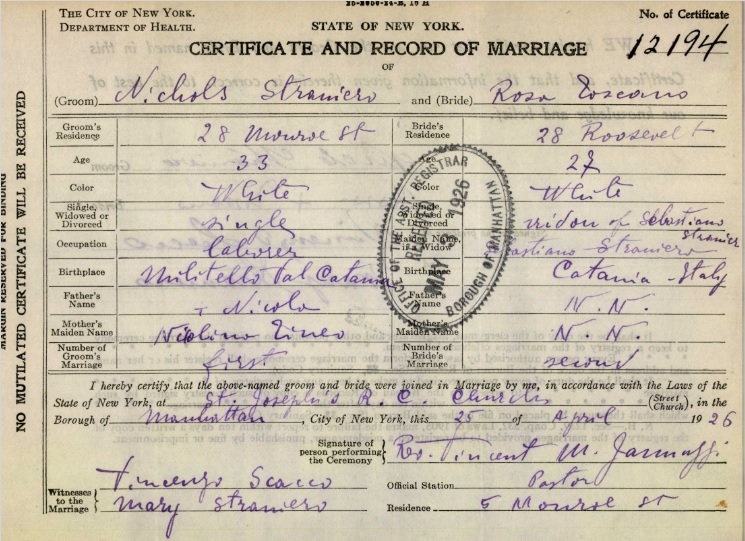 THE CITY OF NEW YORK.
DEPARTMENT OF HEALTH.
STATE OF NEW YORK.
No. of Certificate
CERTIFICATE AND RECORD OF MARRIAGE
12194
OF
(Groom) Nichols Straniero and (Bride) Rosa Toscano
Groom's Residence 28 Monroe St Bride's Residence 28 Roosevelt
Age 33 Age 27
Color White Color White
Single, Widowed or Divorced single Single, Widowed or Divorced widow of Sebastiano Straniero
Occupation laborer Maiden Name, if a Widow Sebastiano Straniero
Birthplace Militello Val Catania Birthplace Catania - Italy
Father's Name Nicola Father's Name N. N.
Mother's Maiden Name Mother's Maiden Name N. N.
Number of Groom's Marriage first Number of Bride's Marriage second
I hereby certify that the above-named groom and bride were joined in Marriage by me, in accordance with the Laws of the
State of New York, at St. Joseph's R. C. Church (Street Church), in the
Borough of Manhattan, City of New York, this 25 of April 1926
Signature of person performing the Ceremony Rev. Vincent M.
Witnesses to the Marriage Vincenzo Scacco Official Station Pastor
Mary Straniero Residence 5 Monroe St
OFFICE OF THE ASST. REGISTRAR
MAY 1926
BOROUGH OF MANHATTAN
NO MUTILATED CERTIFICATE WILL BE RECEIVED
MARGIN RESERVED FOR BINDING